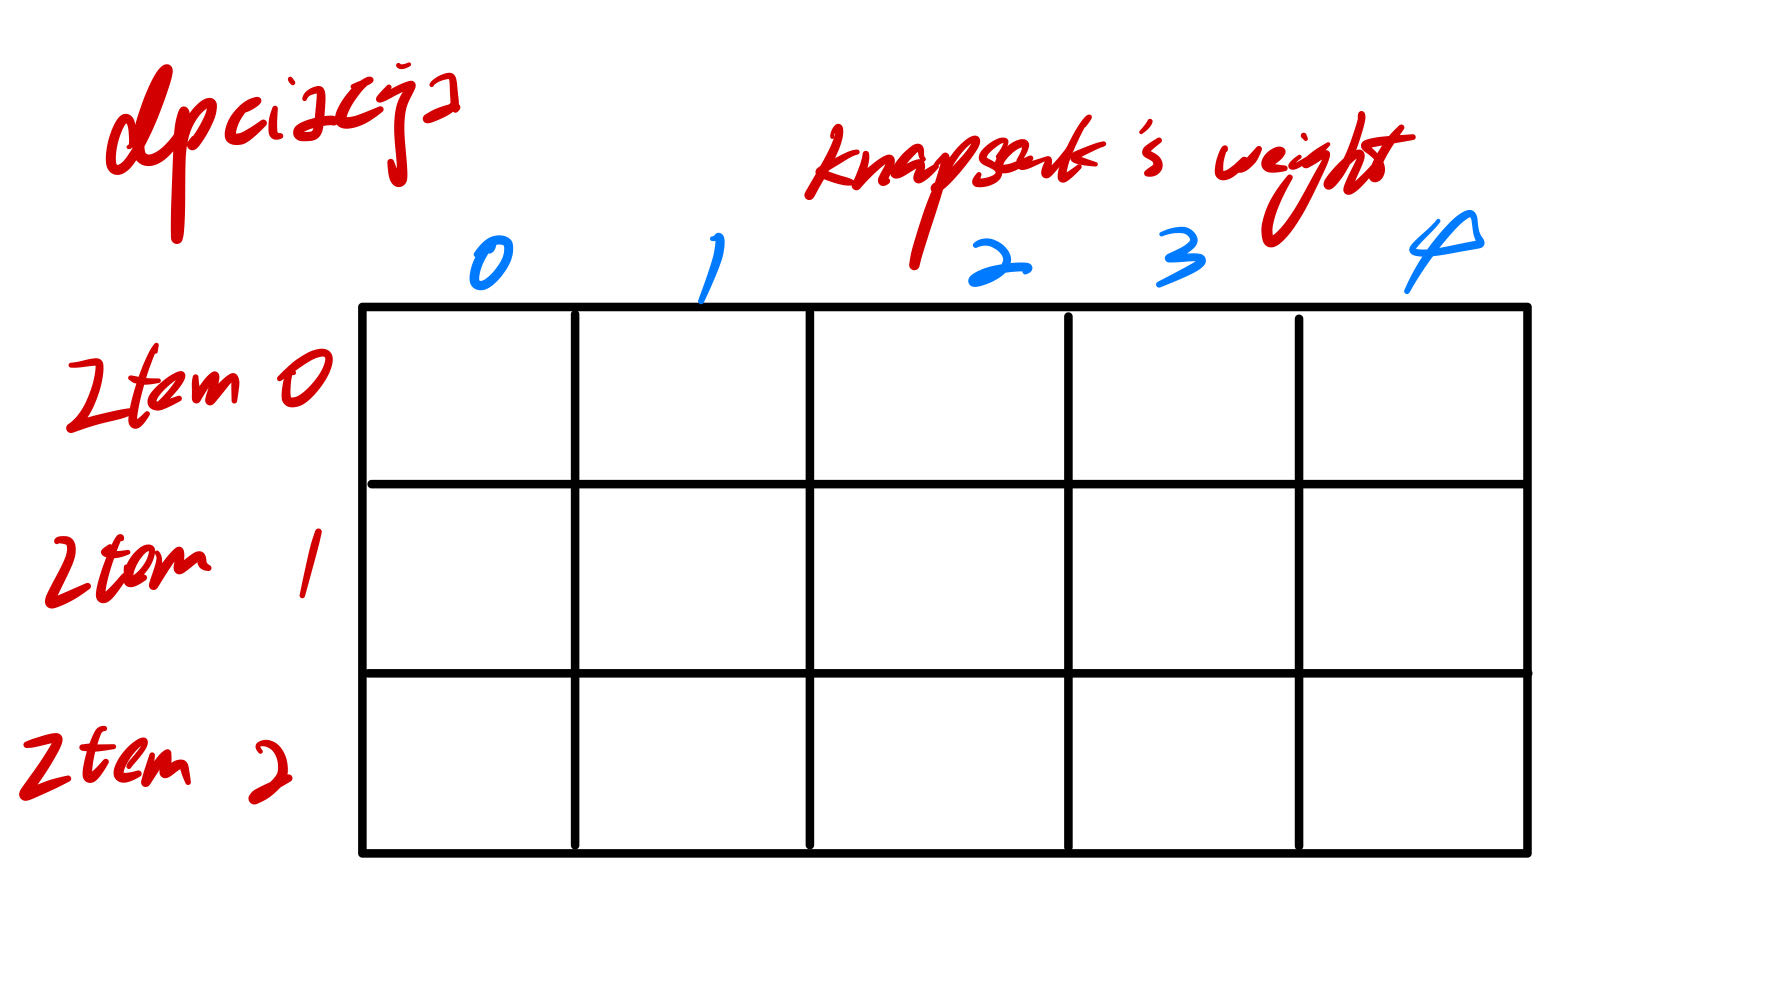 dp[i][j]
knapsack's weight
0 1 2 3 4
Item 0
Item 1
Item 2